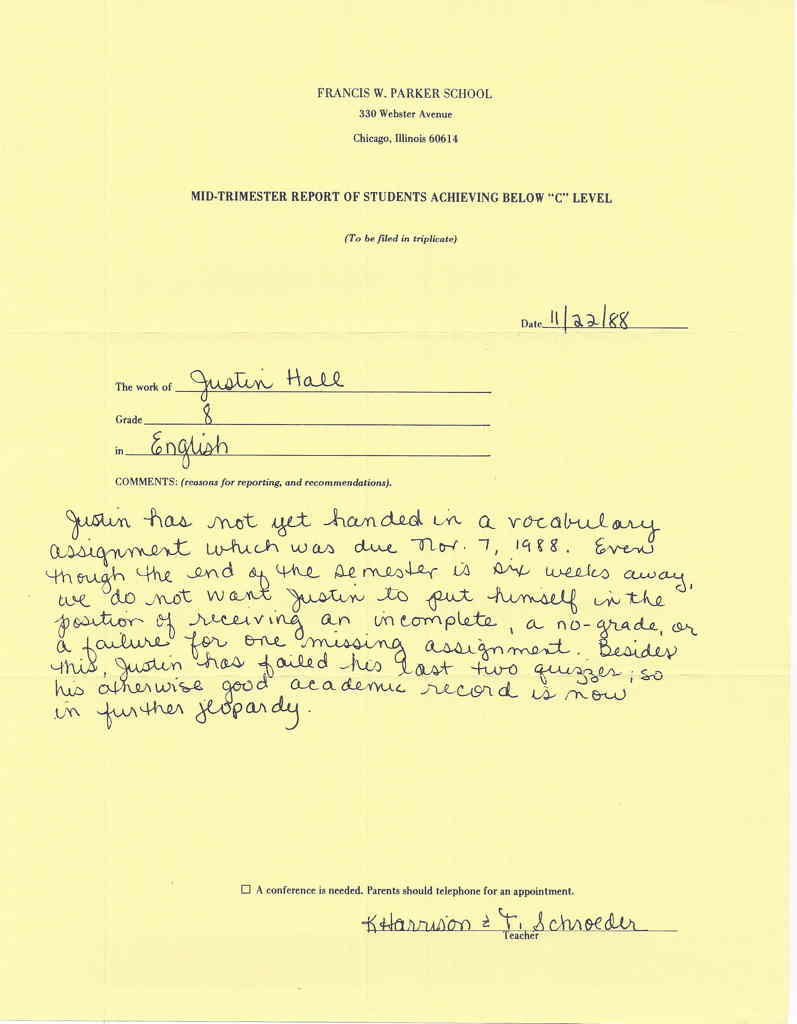 FRANCIS W. PARKER SCHOOL
330 Webster Avenue
Chicago, Illinois 60614
MID-TRIMESTER REPORT OF STUDENTS ACHIEVING BELOW "C" LEVEL
(To be filed in triplicate)
Date 11/22/88
The work of Justin Hall
Grade 8
in English
COMMENTS: (reasons for reporting, and recommendations).
Justin has not yet handed in a vocabulary
assignment which was due Nov. 7, 1988. Even
though the end of the semester is six weeks away,
we do not want Justin to put himself in the
position of receiving an incomplete, a no-grade, or
a failure for one missing assignment. Besides
this, Justin has failed his last two quizzes; so
his otherwise good academic record is now
in further jeopardy.
☐ A conference is needed. Parents should telephone for an appointment.
K Harrison & T. Schroeder
Teacher